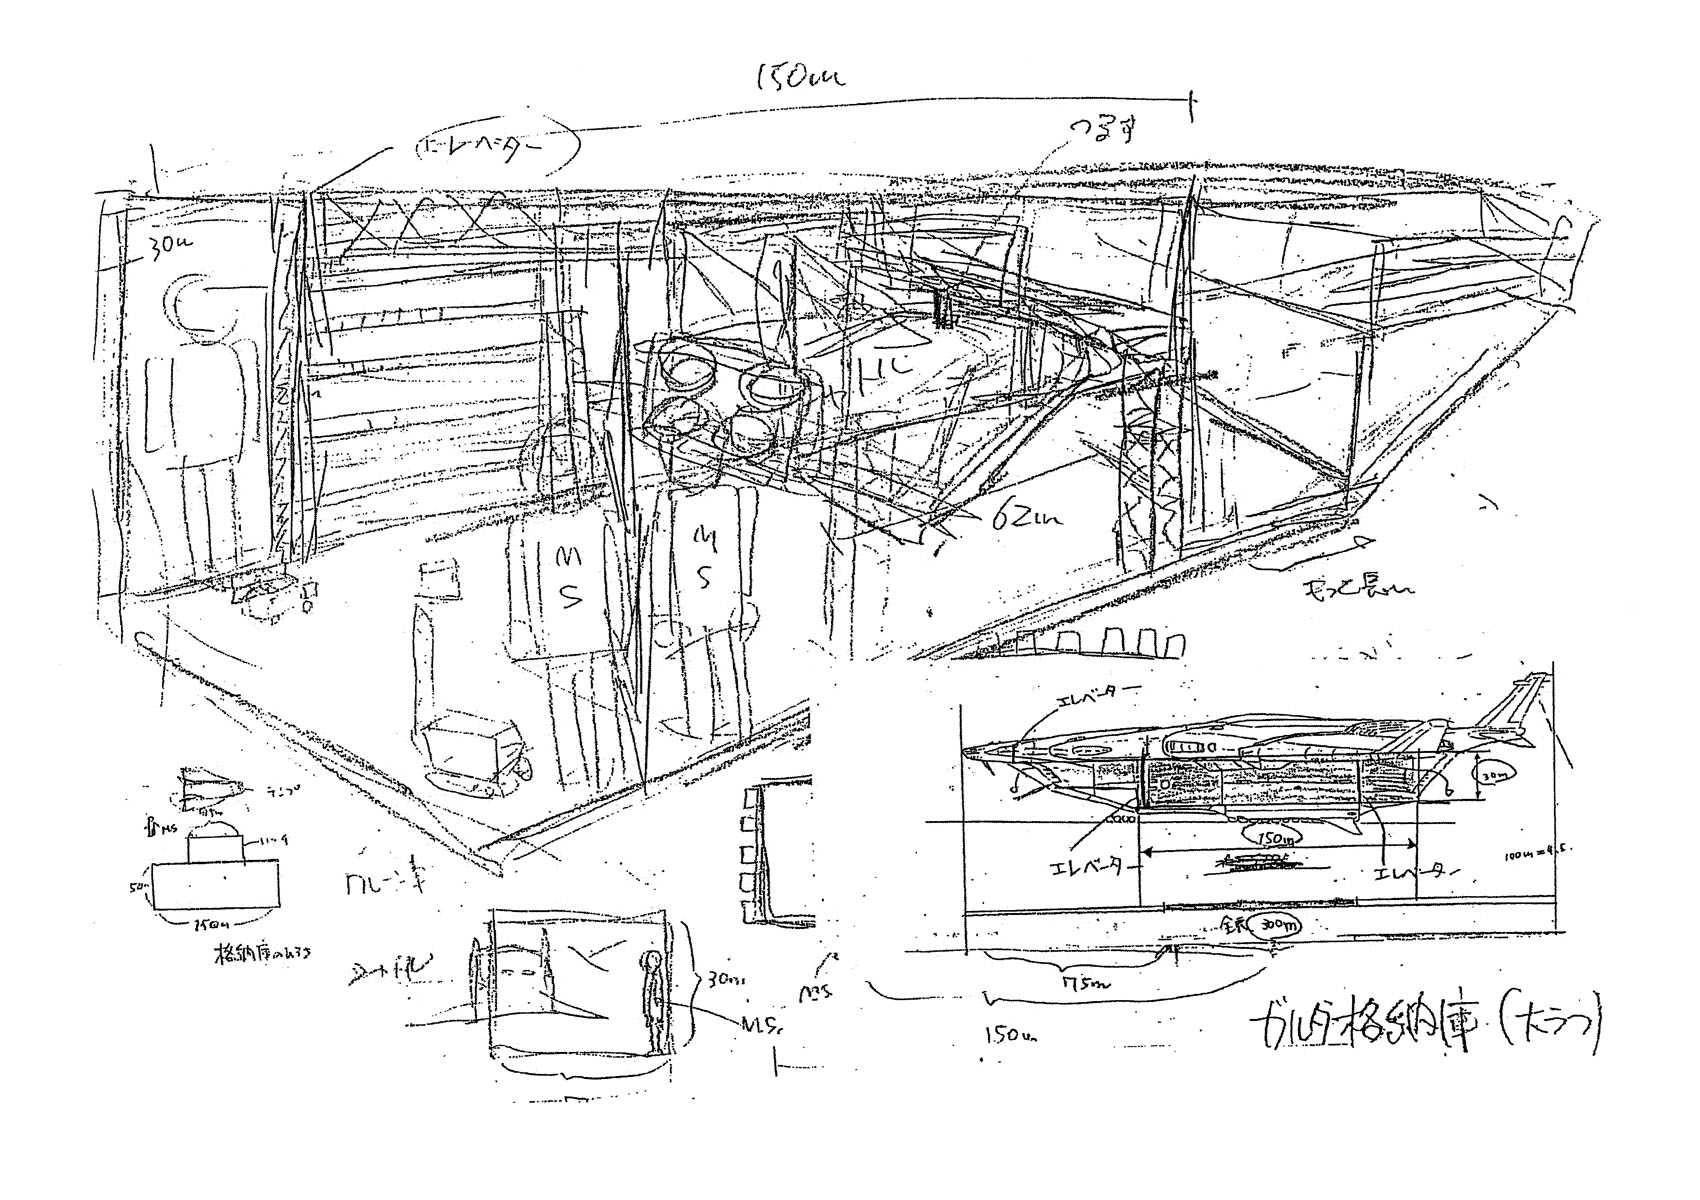 150m
エレベーター
つるす
30m
62m
MS
MS
もっと長い
エレベーター
30m
150m
100m=4.5.
エレベーター
エレベーター
全長 300m
75m
150m
ガルダー格納庫(大ラフ)
MS
50m
150m
格納庫のひろさ
クレーン車
シャトル
30m
MS